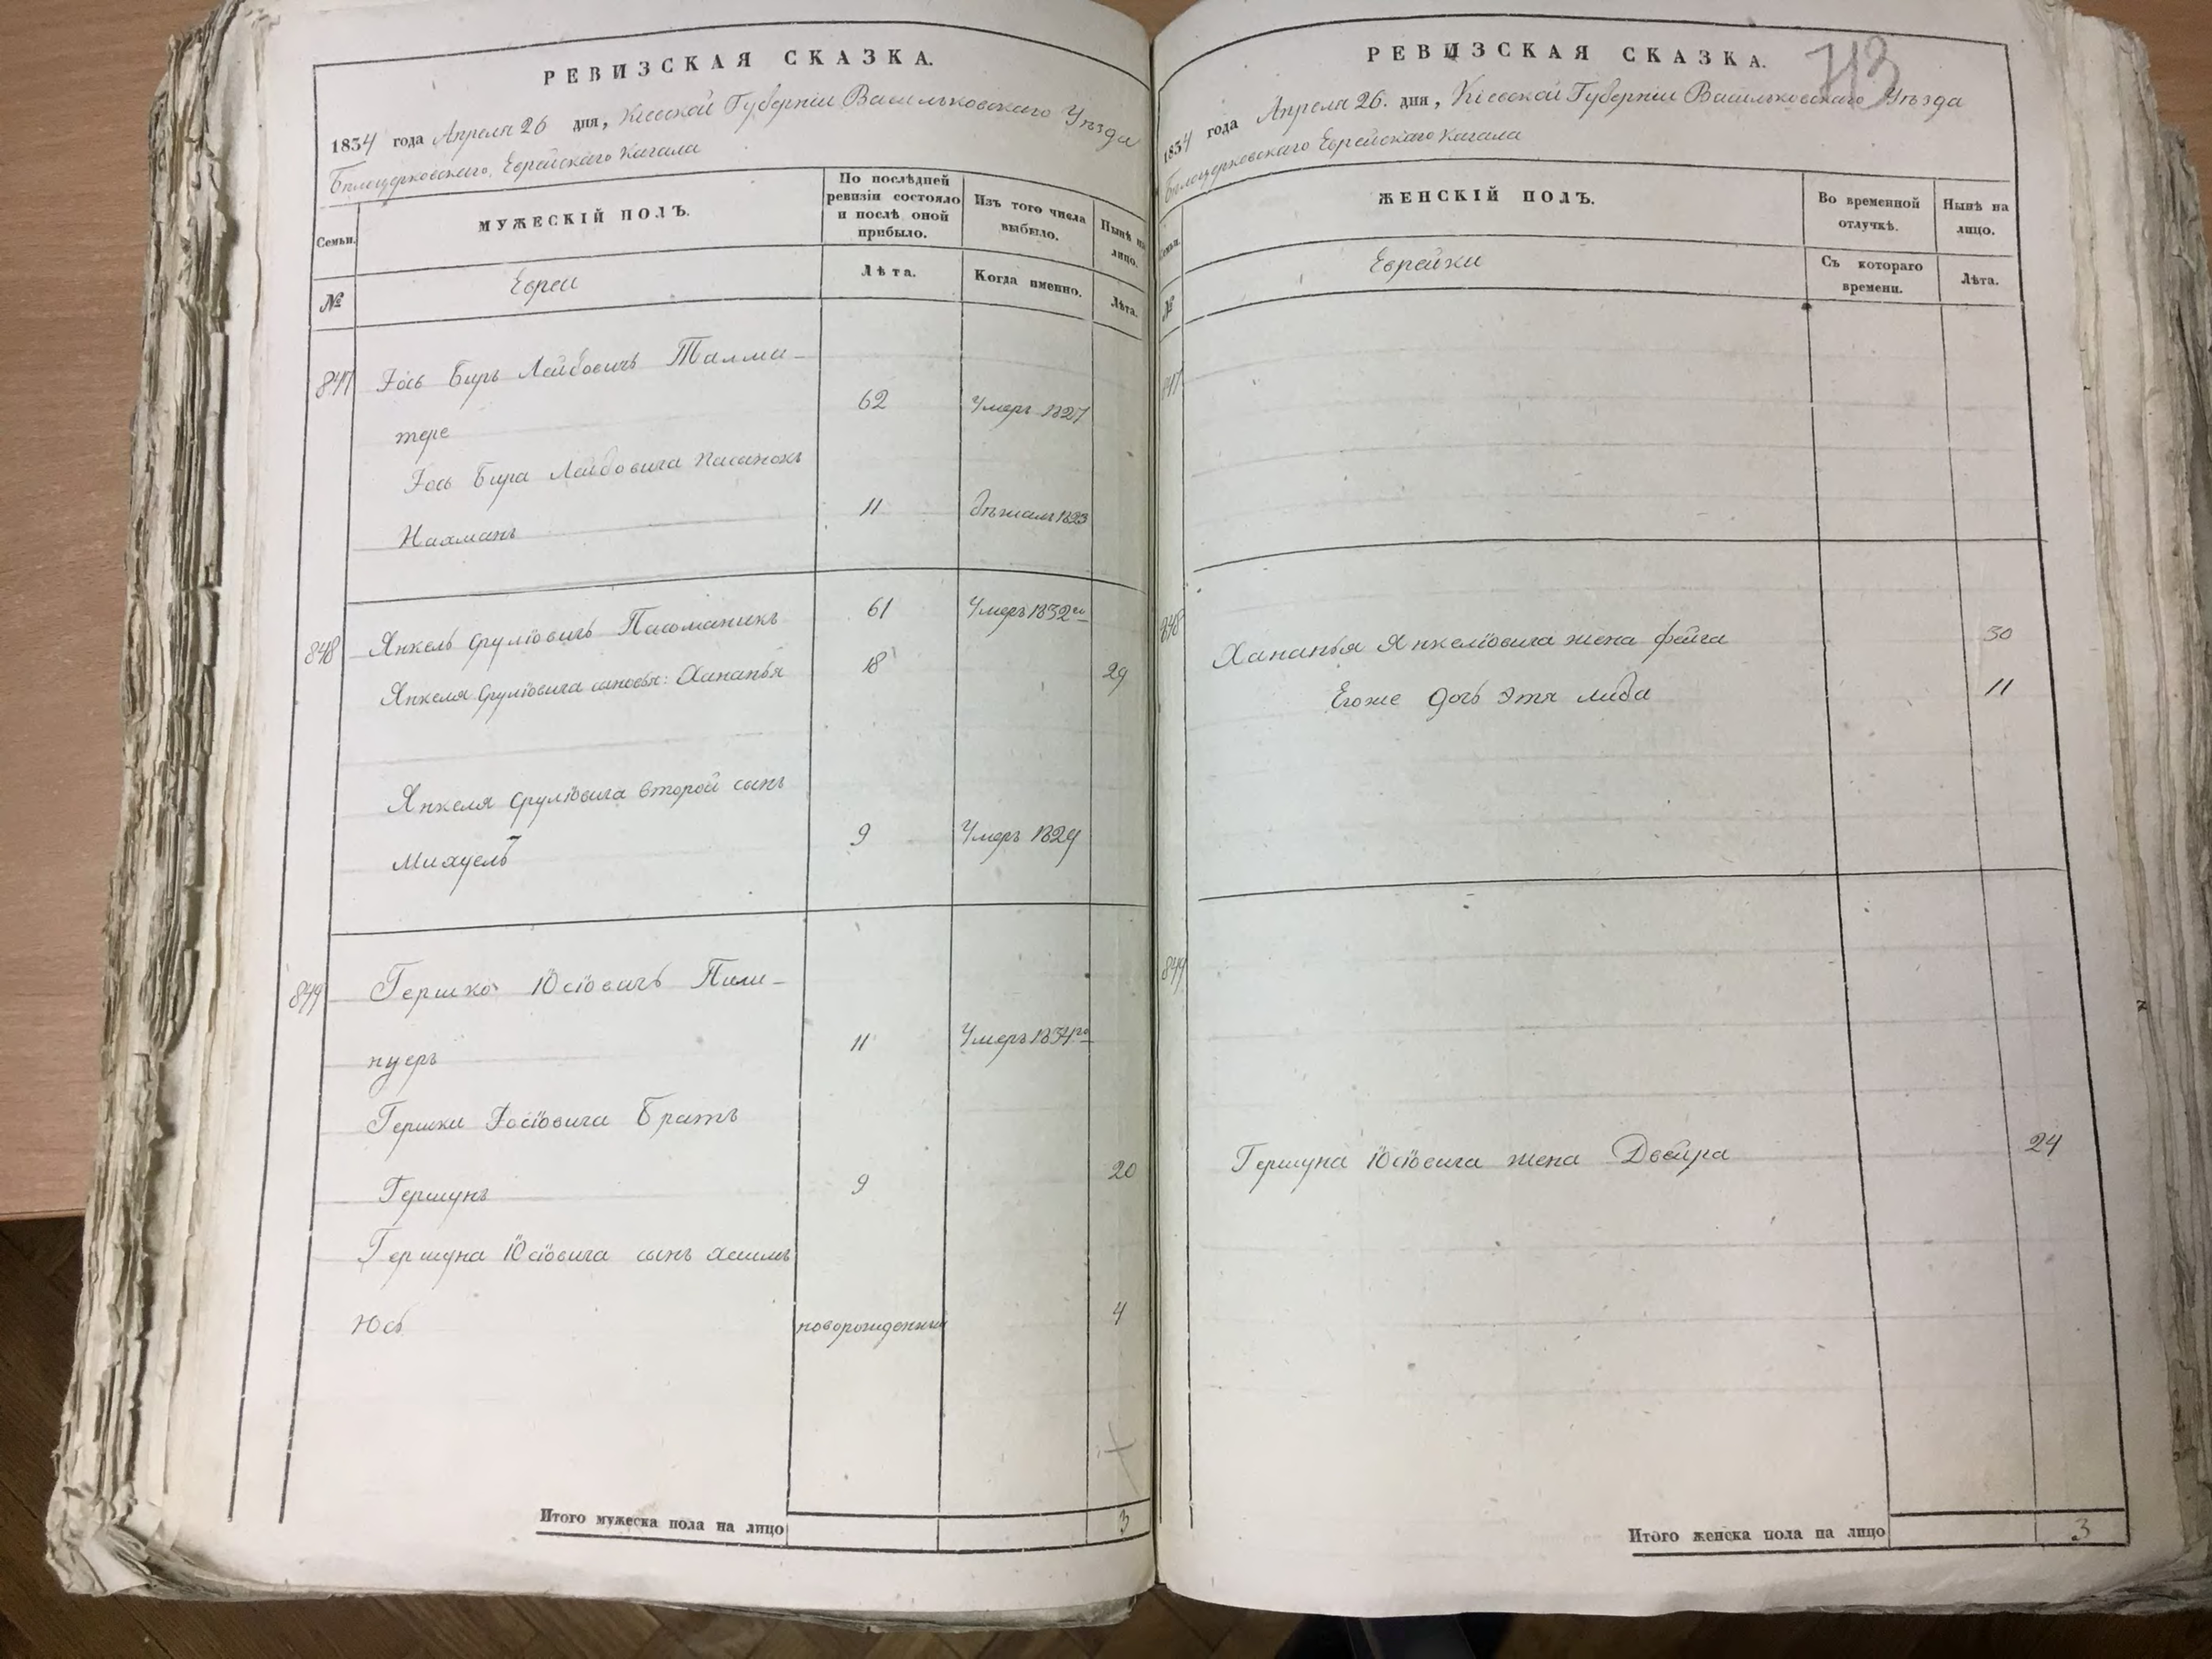 РЕВИЗСКАЯ СКАЗКА.
1834 года Апреля 26 дня, Кіевской Губерніи Васильковскаго Уѣзда
Бѣлоцерковскаго Еврейскаго Кагала
Семьи.
МУЖЕСКІЙ ПОЛЪ.
По послѣдней ревизіи состояло и послѣ оной прибыло.
Изъ того числа выбыло.
Нынѣ на лицо.
№
Евреи
Лѣта.
Когда именно.
Лѣта.
847 Іось Биръ Лейбовичъ Талма-
тере 62 Умеръ 1827
Іось Бира Лейбовича пасынокъ
Нахманъ 11 бѣжалъ 1823
848 Янкель Срулiовичъ 61 Умеръ 1832го
Янкеля Срулiовича сыновья: Хананья 18 29
Янкеля Срулiовича второй сынъ
Михуель 9 Умеръ 1829
849 Гершко Юсiовичъ Пили-
нуеръ 11 Умеръ 1834го
Гершки Іосiовича братъ
Гершунъ 9 20
Гершуна Юсiовича сынъ
Юсь новорожденный 4
Итого мужеска пола на лицо 3
РЕВИЗСКАЯ СКАЗКА.
713
1834 года Апреля 26. дня, Кіевской Губерніи Васильковскаго Уѣзда
Бѣлоцерковскаго Еврейскаго Кагала
Семьи.
ЖЕНСКІЙ ПОЛЪ.
Во временной отлучкѣ.
Нынѣ на лицо.
№
Еврейки
Съ котораго времени.
Лѣта.
847
848 Хананья Янкелiовича жена Фейга 30
Егоже дочь Этя Либа 11
849
Гершуна Юсiовича жена Двейра 24
Итого женска пола на лицо 3